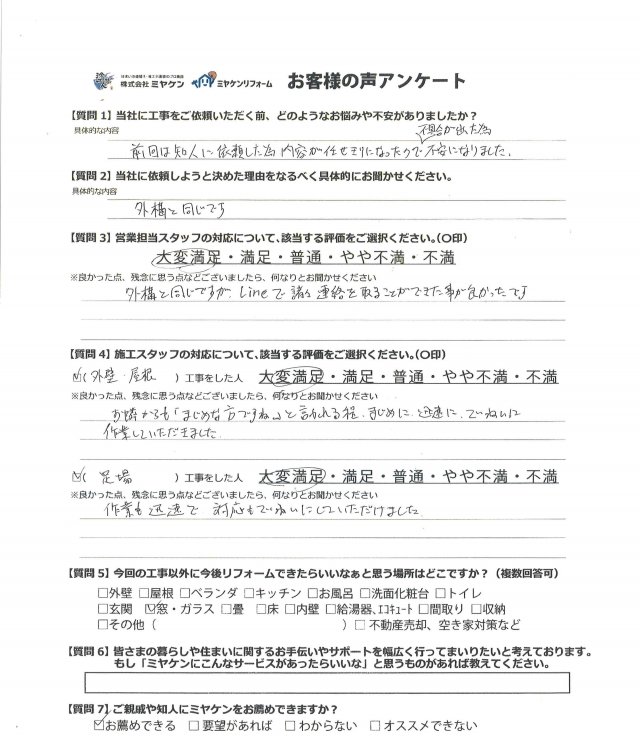 住まいの塗替え・省エネ塗装のプロ集団
株式会社 ミヤケン ミヤケンリフォーム お客様の声アンケート
【質問 1】当社に工事をご依頼いただく前、どのようなお悩みや不安がありましたか？
具体的な内容
不具合が出た為
前回は知人に依頼した為 内容が任せきりになったので 不安になりました.
【質問 2】当社に依頼しようと決めた理由をなるべく具体的にお聞かせください。
具体的な内容
外構と同じです
【質問 3】営業担当スタッフの対応について、該当する評価をご選択ください。（〇印）
大変満足・満足・普通・やや不満・不満
※良かった点、残念に思う点などございましたら、何なりとお聞かせください
外構と同じですが. Lineで 諸々 連絡を取ることができた事が良かったです
【質問 4】施工スタッフの対応について、該当する評価をご選択ください。（〇印）
☑（外壁・屋根 ）工事をした人 大変満足・満足・普通・やや不満・不満
※良かった点、残念に思う点などございましたら、何なりとお聞かせください
お隣からも「まじめな方ですね」と言われる程、まじめに 迅速に、ていねいに
作業していただきました
☑（足場 ）工事をした人 大変満足・満足・普通・やや不満・不満
※良かった点、残念に思う点などございましたら、何なりとお聞かせください
作業も迅速で 対応もていねいにしていただけました
【質問 5】今回の工事以外に今後リフォームできたらいいなぁと思う場所はどこですか？（複数回答可）
□外壁 □屋根 □ベランダ □キッチン □お風呂 □洗面化粧台 □トイレ
□玄関 ☑窓・ガラス □畳 □床 □内壁 □給湯器、ｴｺｷｭｰﾄ □間取り □収納
□その他（ ）□不動産売却、空き家対策など
【質問 6】皆さまの暮らしや住まいに関するお手伝いやサポートを幅広く行ってまいりたいと考えております。
もし「ミヤケンにこんなサービスがあったらいいな」と思うものがあれば教えてください。
【質問 7】ご親戚や知人にミヤケンをお薦めできますか？
☑お薦めできる □要望があれば □わからない □オススメできない